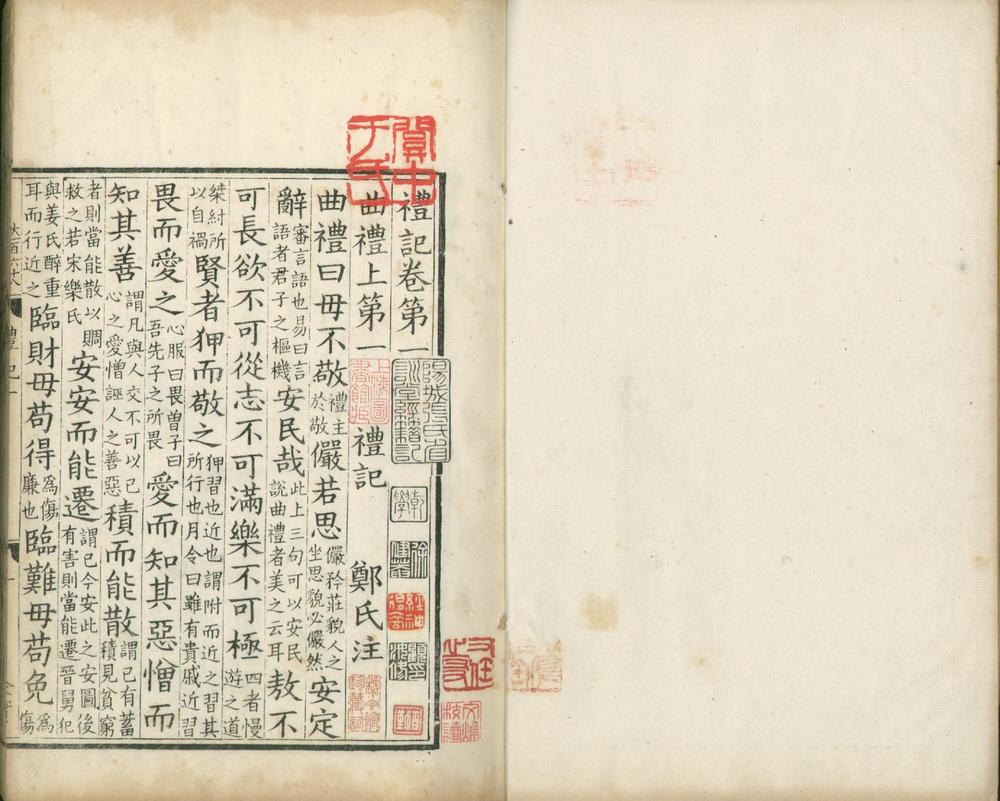 禮記卷第一
曲禮上第一 禮記 鄭氏注
曲禮曰毋不敬禮主於敬儼若思儼矜莊貌人之坐思貌必儼然安定
辭審言語也易曰言語者君子之樞機安民哉此上三句可以安民說曲禮者美之云耳敖不
可長欲不可從志不可滿樂不可極四者慢遊之道
桀紂所以自禍賢者狎而敬之狎習也近也謂附而近之習其所行也月令曰雖有貴戚近習
畏而愛之心服曰畏曾子曰吾先子之所畏愛而知其惡憎而
知其善謂凡與人交不可以己心之愛憎誣人之善惡積而能散謂己有蓄積見貧窮
者則當能散以賙救之若宋樂氏安安而能遷謂己今安此之安圖後有害則當能遷晉舅犯
與姜氏醉重耳而行近之臨財毋苟得為傷廉也臨難毋苟免為傷
禮記一